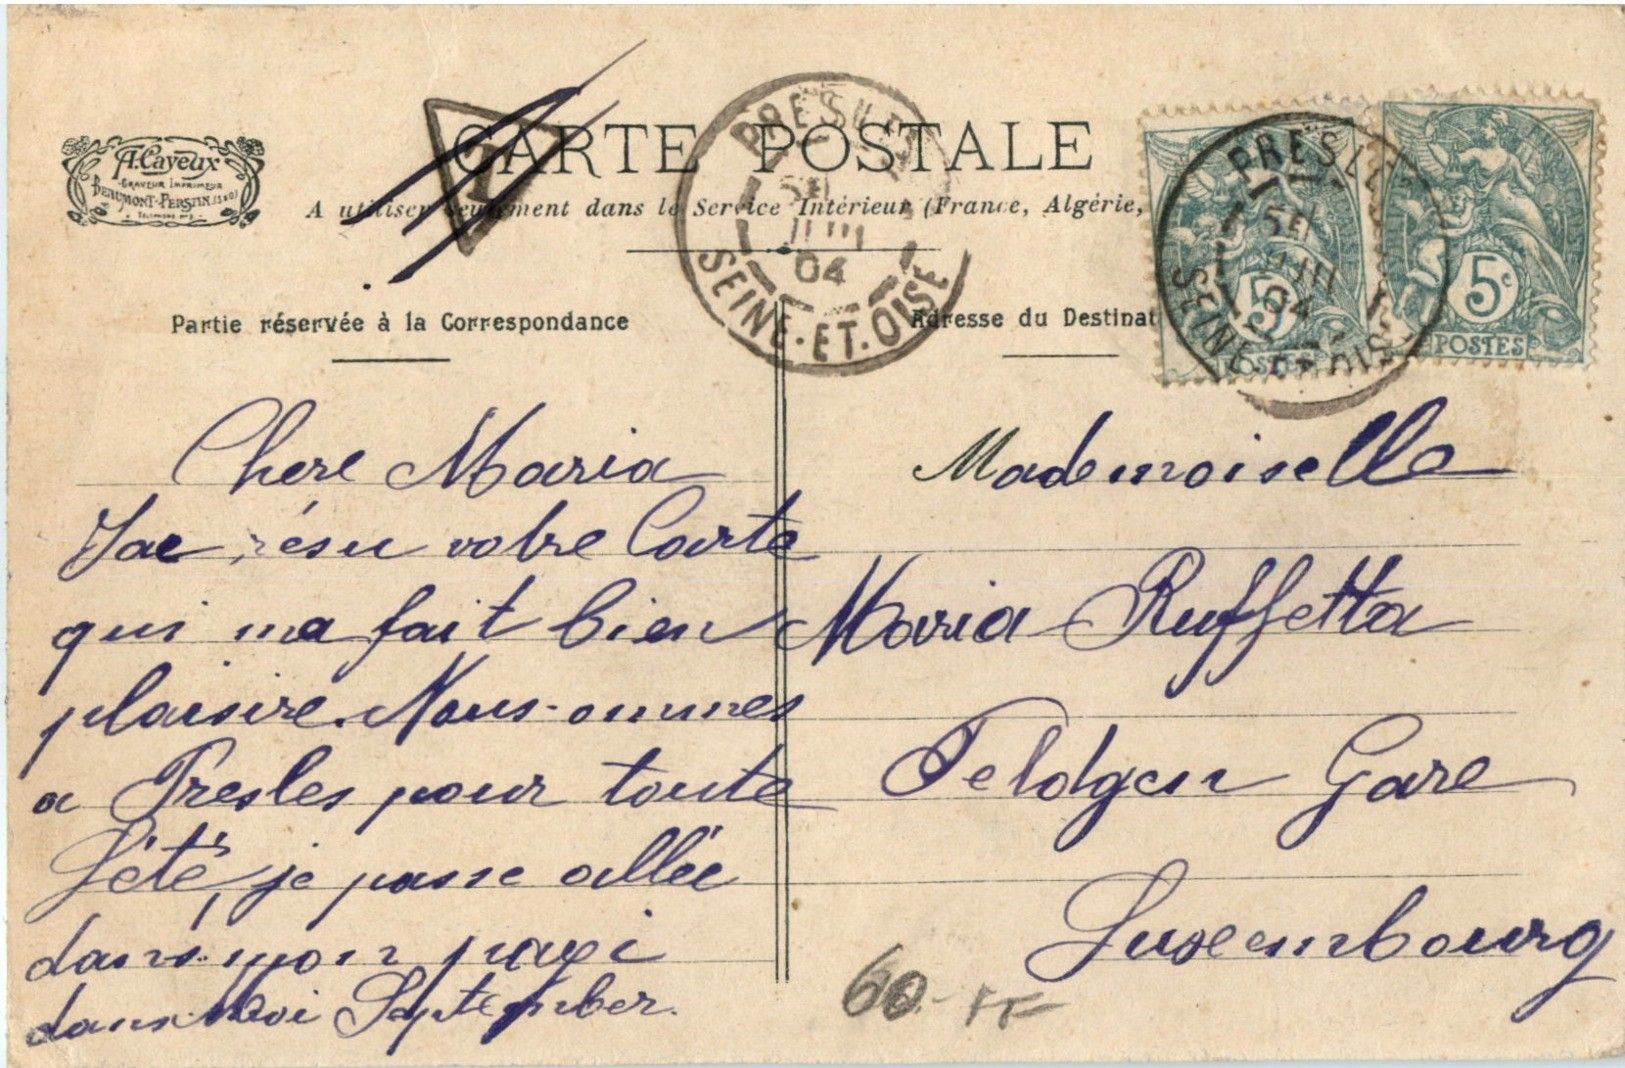 A. Cayeux
GRAVEUR IMPRIMEUR
BEAUMONT-PERSAN (S&O)
TÉLÉPHONE Nº 3
T
CARTE POSTALE
A utiliser seulement dans le Service Intérieur (France, Algérie,
PRESLES
JUIN
04
SEINE-ET-OISE
PRESLES
JUIN
04
SEINE-ET-OISE
5
POSTES
5c
POSTES
Partie réservée à la Correspondance
Adresse du Destinat
Chere Maria
Jae résu votre Carte
qui ma fait bien
plaisire. Nous-ommes
a Presles pour toute
l'été, je passe allée
dans mon payi
dans Moi September.
Mademoiselle
Maria Ruffetta
Feldgen Gare
Luxembourg
60.- FF